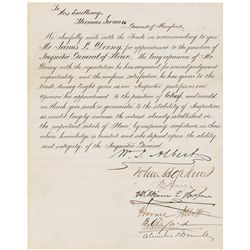 To
His Excellency
Thomas Swann
Governor of Maryland
We cheerfully unite with the Trade in recommending to you
Mr James L. Dorsey, for appointment to the position of
Inspector General of Flour. The long experience of Mr
Dorsey with the reputation he has acquired for
impartiality, and the uniform satisfaction he has given to the
trade during eight years as an Inspector justifies in our
opinion his approval to the position of Chief and would
we think give such a guarantee to the stability of Inspection
as would largely increase the interest already established
in the important article of Flour, by inspiring confidence in those
whose knowledge is limited and who depend upon the ability
and integrity of the Inspector General.
W. J. Albert
Johns Hopkins
William E. Hooper
Horace Abbott
Columbus O'Donnell